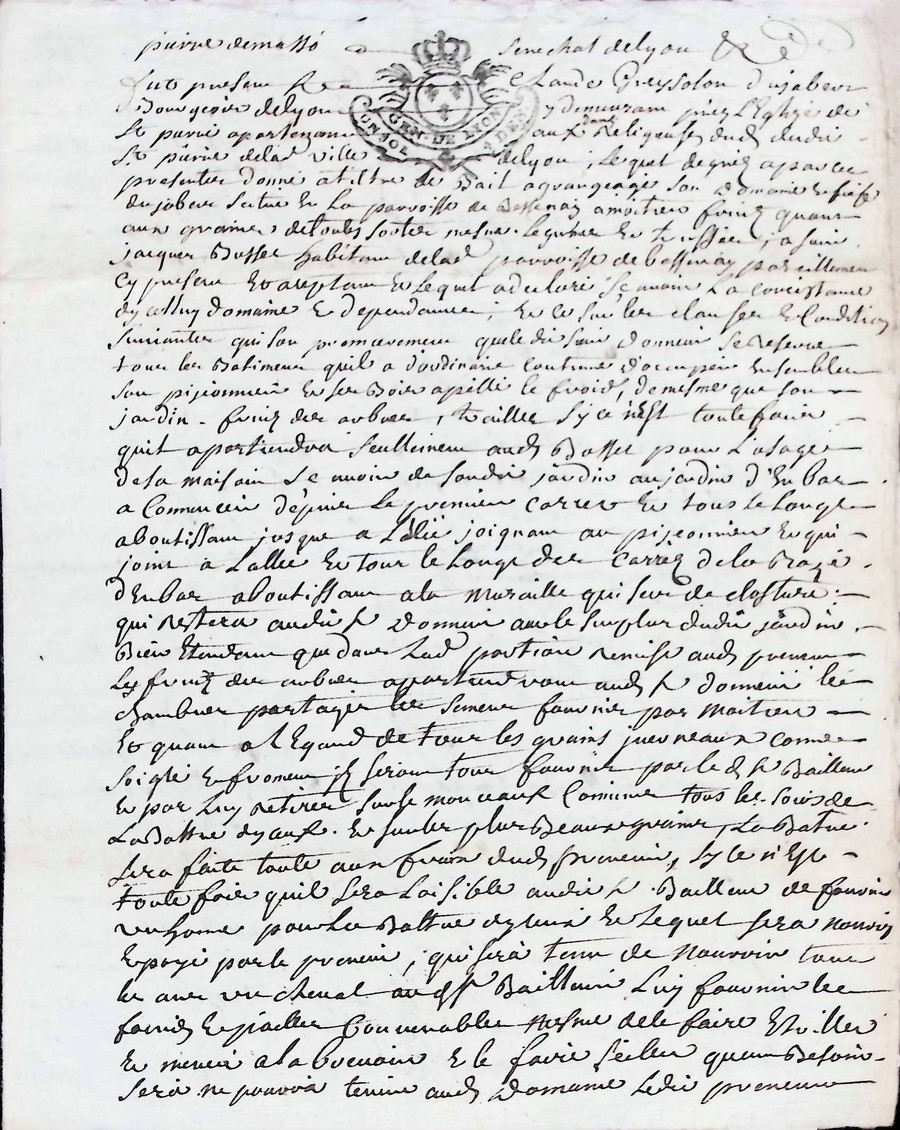 pierre demasso senechal delyon &
fut present Sr Claude Greysolon dujabert
Bourgeois delyon y demeurant prez L'Eglize de
St pierre apartenant aux dames Religieuses dud
St pierre delad ville delyon, Lequel degré a par ces
presentes donné a tiltre de Bail a grangeage son Domaine et fief
dujabert scitué en La parroisse de Bessenay a moitier fruiz quant
aux grains detoutes sortes mesme Legumes et
jacques Basset habitant delad parroisse de bessenay pareillement
Cy present et aceptant et Lequel a declaré sçavoir La consistance
dycelluy domaine et dependances, et ce sur les clauses et Condition
Suivantes qui sont premierement que ledit sieur donneur se Reserve
tous les Batimens quil a d'ordinaire coutume d'occuper Ensemble
son pijonnier et ses Bois apellé le froid, demesme que son
jardin fruiz des arbres, treilles sy ce n'Est toute fois
quil apartiendra seullement aud Basset pour L'usage
desa maison le de jardin au jardin d'Enbas
a Commencer depuis Le premier carrez et tous Le Long
aboutissant jusque a L'alée joignant au pijeonnier et qui
joint a Lallée et tout le Long des Carrez dela
d'Enbas aboutissant ala muraille qui sert de closture
qui Restera audit Sr Donneur avec le surplus dudit jardin,
Bien Entendu que dans Lad portion remise aud preneur
Les fruiz des arbres apartiendront aud Sr donneur le
chambre partagé les semens fournir par moitier
Et quant a l'Egard de tous les grains yverneaux comme
soigle et froment jls seront tous fournir par le d Sr Bailleur
et par Luy retirer sur le monceaux Comme tous les soirs de
La Battue dyceux et sur les plus Beaux grains, La Batue
sera faite toute aux fraix dud preneur, sy ce n'Est
toute fois quil sera Loisible audit Sr Bailleur de fournir
un home pour La Battue dyceux et Lequel sera nourry
et payé par le preneur, qui sera tenu de nourrir tous
les ans un cheval aud Sr Bailleur Luy fournir les
foins et pailles Convenables mesme dele faire Etriller
et mener a la breuvoir et le faire seller quand Besoin
sera ne pourra tenir aud Domaine Ledit preneur
CONSOL GEN. DE LYON